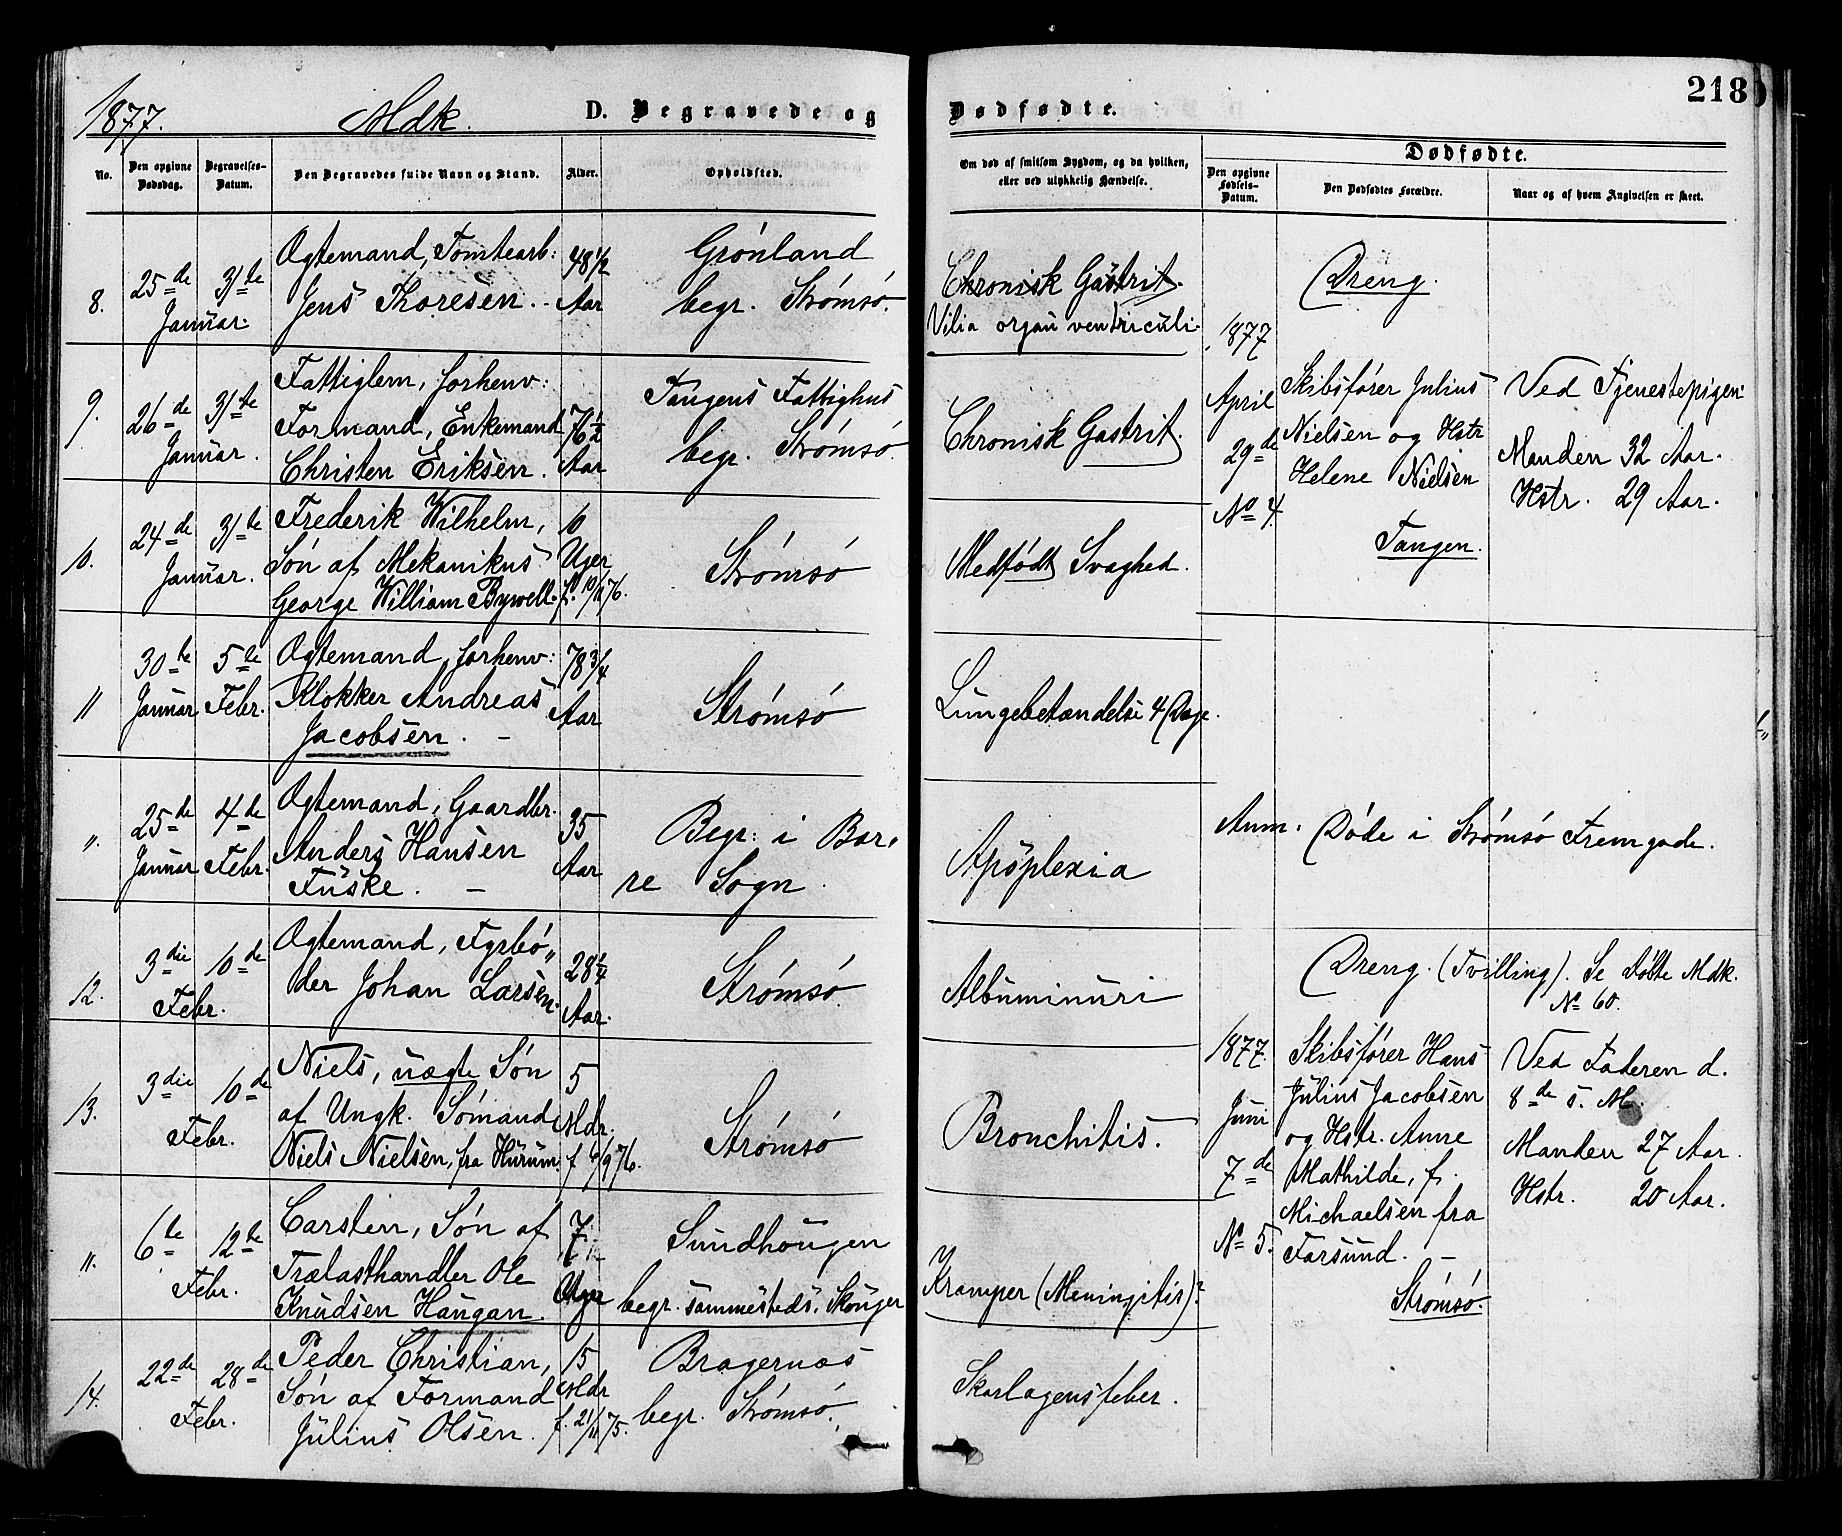 1877. Mdk. D. Begravede og Dødfødte. 218
No.
Den opgivne Dødsdag.
Begravelses-Datum.
Den Begravedes fulde Navn og Stand.
Alder.
Opholdsted.
Om død af smitsom Sygdom, og da hvilken, eller ved ulykkelig Hændelse.
Dødfødte.
Den opgivne Fødsels-Datum.
Den Dødfødtes Forældre.
Naar og af hvem Angivelsen er skeet.
8.
25de 31te
Januar.
Ogtemand, Tomtearb:
Jens Thoresen.
48 1/2
Aar
Grönland
begr. Strömsö.
Chronisk Gastrit.
organ ventriculi.
9.
26de 31te
Januar.
Fattiglem, forhenv:
Formand, Enkemand
Christen Eriksen.
76 1/2
Aar
Tangens Fattighus
begr. Strömsö.
Chronisk Gastrit.
10.
24de 31te
Januar.
Frederik Wilhelm,
Sön af Mekanikus
George William Bywell.
10
Uger
f. 19/11 76.
Strömsö
Medfödt Svaghed.
11
30te 5te
Januar Febr.
Ogtemand, forhenv:
Klokker Andreas
Jacobsen. -
78 3/4
Aar
Strömsö
Lungebetændelse 4 Dage.
".
25de 4de
Januar Febr.
Ogtemand, Gaardbr.
Anders Hansen
Fuske. -
35
Aar
Begr. i Bor,
re Sogn.
Apoplexia
12.
3die 10de
Febr.
Ogtemand, Fyrbö,,
der Johan Larsen.
28 1/4
Aar.
Strömsö.
Albuminuri
13.
3die 10de
Febr.
Niels, uægte Sön
af Ungk. Sömand
Niels Nielsen, fra Hurum
5
Mdr.
f 6/9 76.
Strömsö
Bronchitis.
".
6te 12te
Febr.
Carsten, Sön af
Trælasthandler Ole
Knudsen Haugan.
7
Uger
Sundhougen
begr. sammesteds. Skouger
Kramper (Meningitis)?
14.
22de 28de
Febr.
Peder Christian,
Sön af Formand
Julius Olsen.
15
Mdr
f. 21/11 75.
Bragernæs
begr. Strömsö.
Skarlagensfeber.
Dreng.
1877
April
29de
No 4.
Skibsförer Julius
Nielsen og Hstr
Helene Nielsen
Tangen.
Ved Tjenestepigen
Manden 32 Aar.
Hstr. 29 Aar.
Anm. Döde i Strömsö Fremgade.
Dreng. (Tvilling). Se Döbte Mdk.
No 60.
1877.
Juni
7de
No 5.
Skibsförer Hans
Julius Jacobsen
og Hstr. Anne
Mathilde, f.
Michaelsen fra
Farsund. -
Strömsö.
Ved Faderen d.
8de s. M.
Manden 27 Aar.
Hstr. 20 Aar.